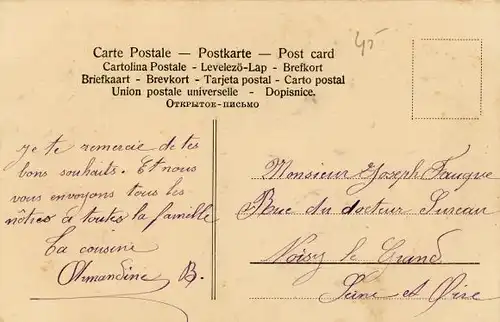 45
Carte Postale — Postkarte — Post card
Cartolina Postale - Levelező-Lap - Brefkort
Briefkaart - Brevkort - Tarjeta postal - Carto postal
Union postale universelle - Dopisnice.
Открытое-письмо
Je te remercie de tes
bons souhaits. Et nous
vous envoyons tous les
nôtres à toutes la famille
Ta cousine
Armandine B.
Monsieur Joseph Fauque
Rue du docteur Sureau
Noisy le Grand
Seine et Oise